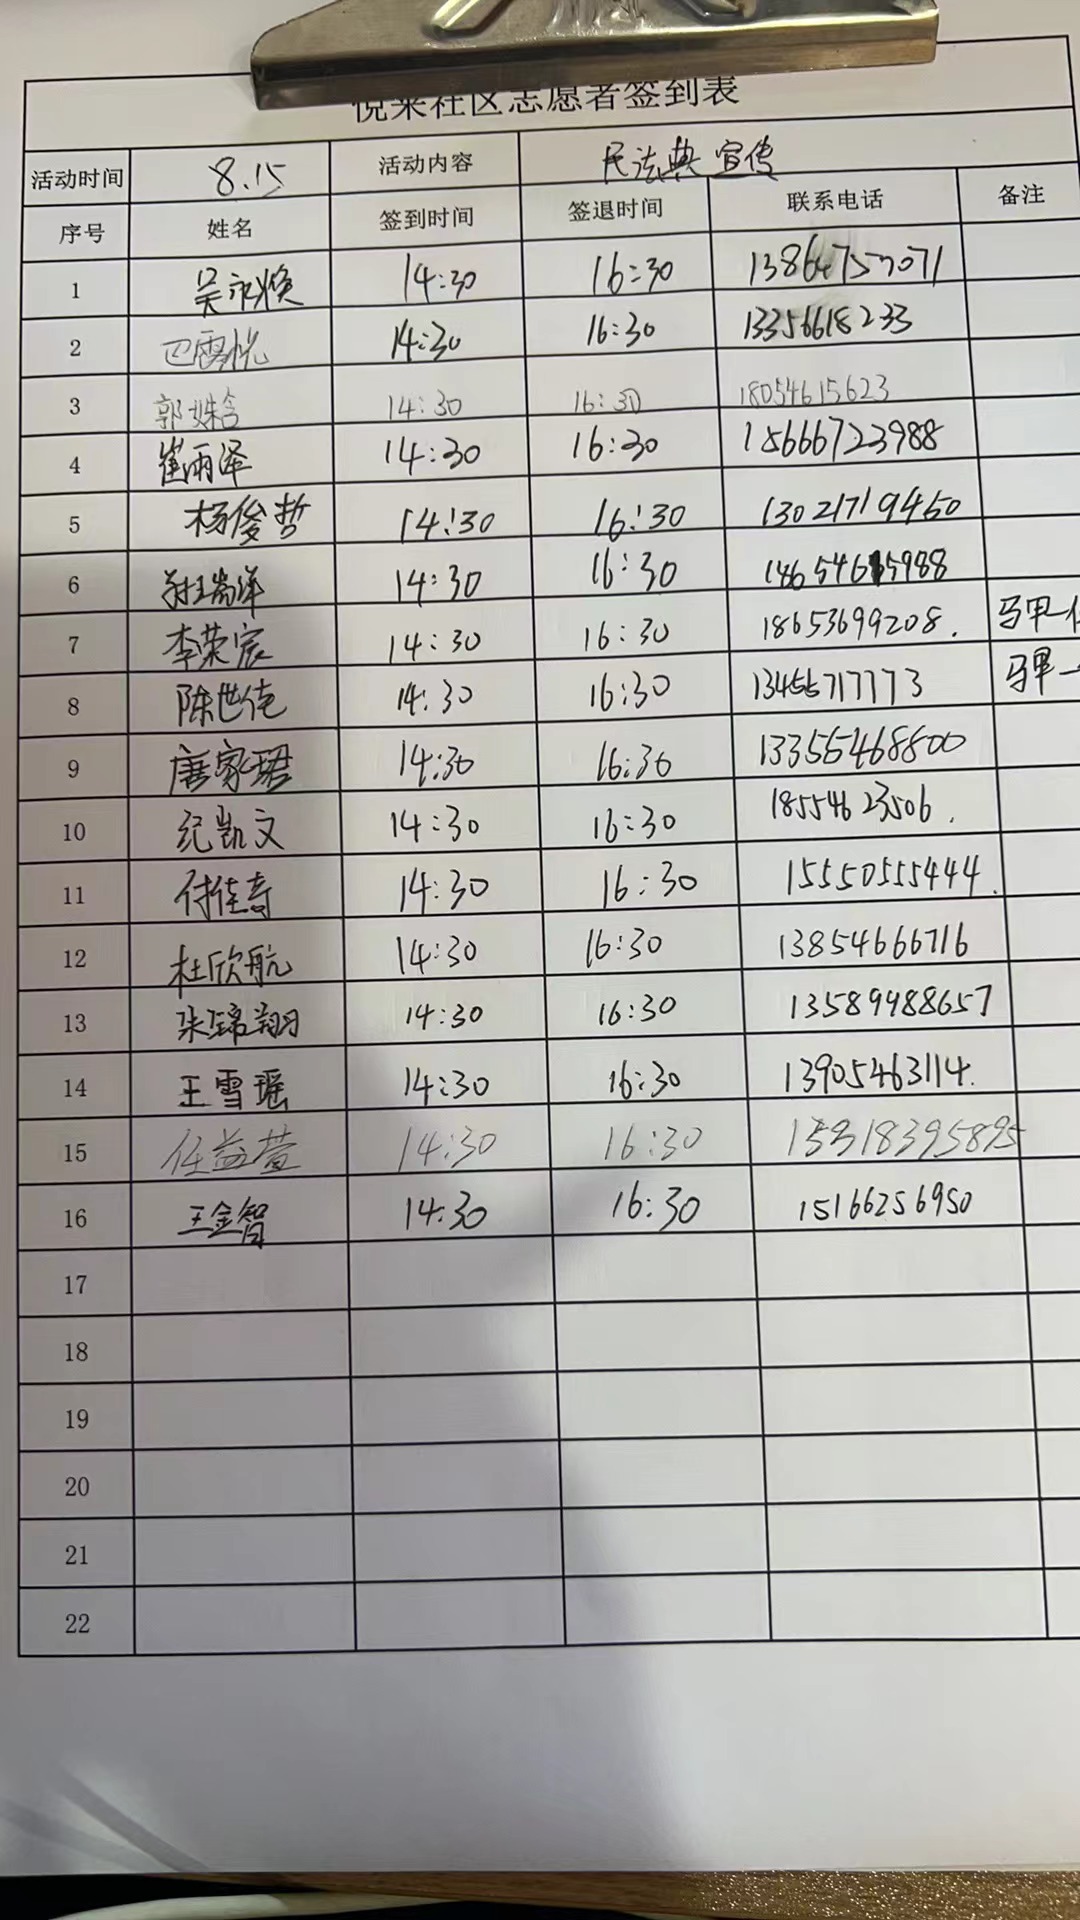 悦来社区志愿者签到表
活动时间 8.15 活动内容 民法典宣传
序号 姓名 签到时间 签退时间 联系电话 备注
1 吴永焕 14:30 16:30 13864757071
2 巴雪悦 14:30 16:30 13356618233
3 郭姝含 14:30 16:30 18054615623
4 崔雨泽 14:30 16:30 15666723988
5 杨俊哲 14:30 16:30 13021719460
6 14:30 16:30
7 李荣宸 14:30 16:30 18653699208. 马甲一
8 陈世佗 14:30 16:30 13455717773 马甲一
9 唐家珺 14:30 16:30 13355468800
10 纪凯文 14:30 16:30 18554623506.
11 付佳奇 14:30 16:30 15550555444.
12 杜欣航 14:30 16:30 13854666716
13 张锦翔 14:30 16:30 13589988657
14 王雪瑶 14:30 16:30 13905463114.
15 任益萱 14:30 16:30
16 王金智 14:30 16:30 15166256950
17
18
19
20
21
22